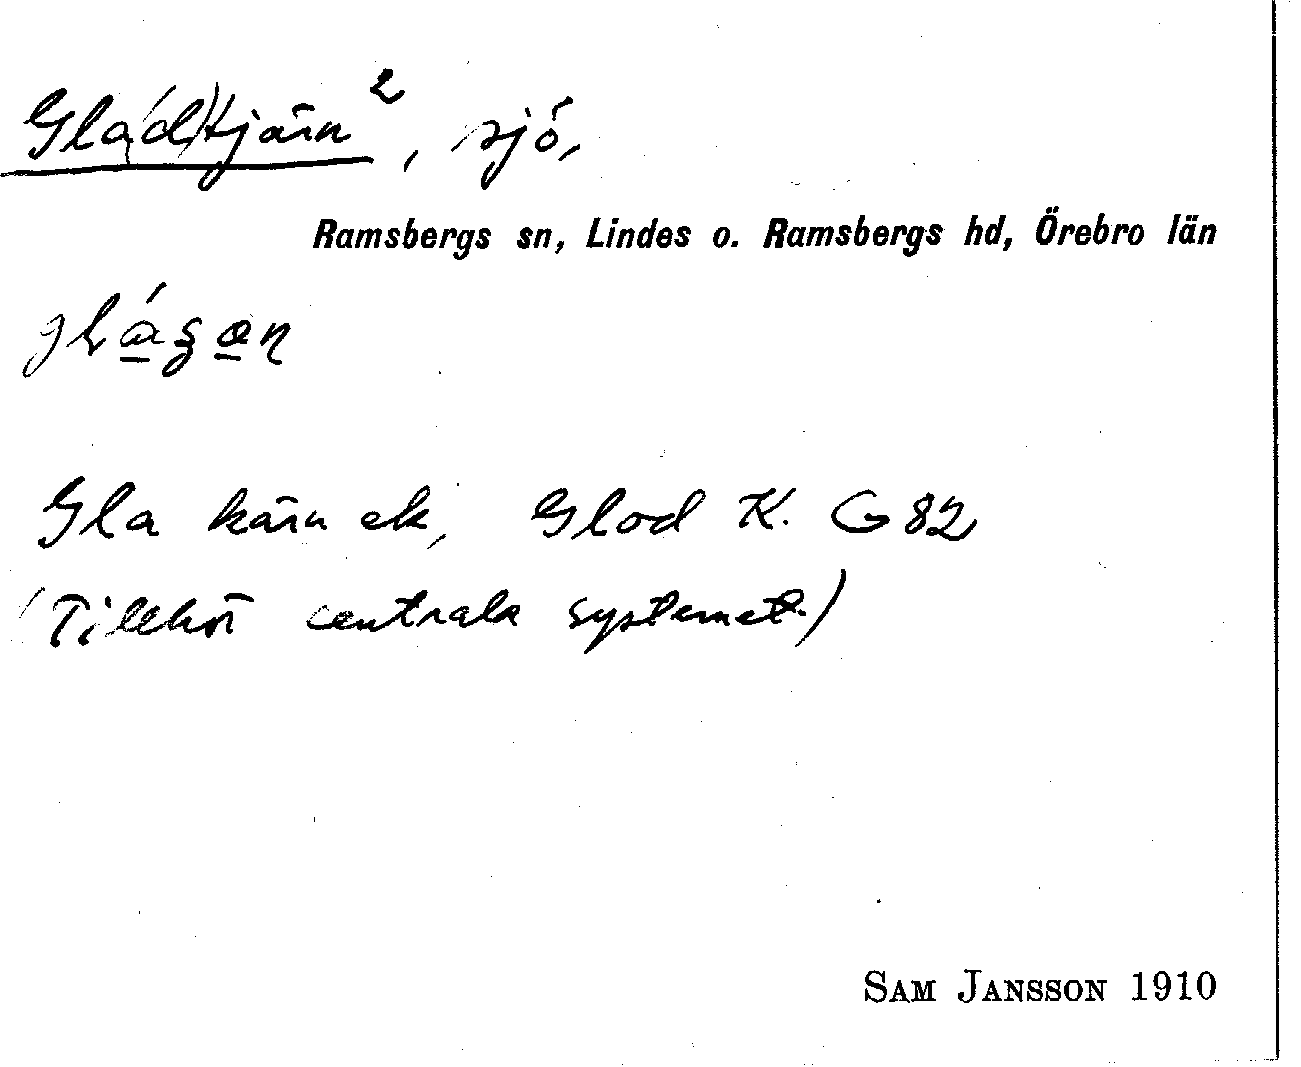 Gla(d)tjärn², sjö,
Ramsbergs sn, Lindes o. Ramsbergs hd, Örebro län
Gla kärn ek, Glod K. G 82
(Tillhör centrala systemet.)
SAM JANSSON 1910